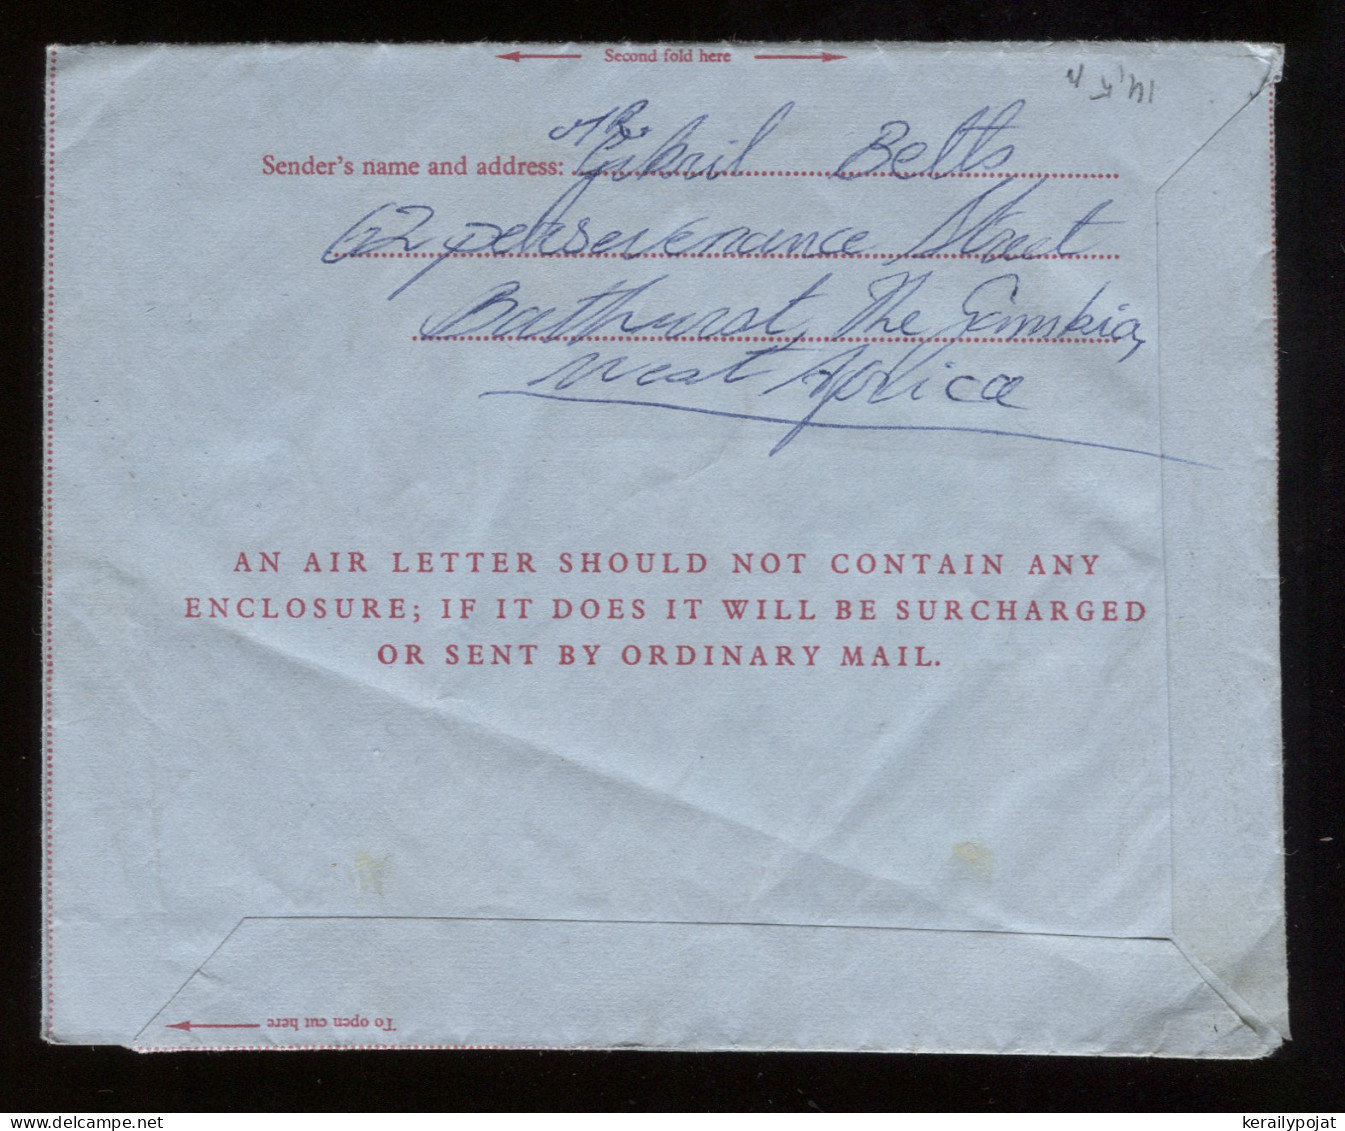 Second fold here
Mr.
Sender's name and address: Jibril Betts
62 perseverance Street
Bathurst, The Gambia,
West Africa
AN AIR LETTER SHOULD NOT CONTAIN ANY
ENCLOSURE; IF IT DOES IT WILL BE SURCHARGED
OR SENT BY ORDINARY MAIL.
To open cut here
kerailypojat